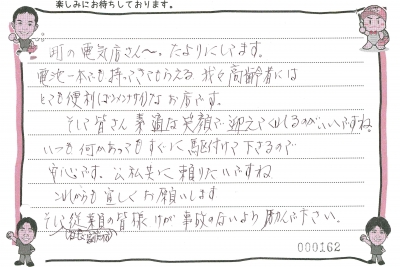 楽しみにお待ちしております。
町の電気店さん〜。たよりにしてます。
電池一本でも持ってきてもらえる 我々高齢者には
とても便利な お店です。
そして皆さん 素適な笑顔で迎えてくれるのがいいですね。
いつも何かあってもすぐに駆付けて下さるので
安心です。公私共に頼りたいですね
これからも宜しくお願いします
そして従業員の皆様 けが 事故のないよう 励んで下さい。
000162